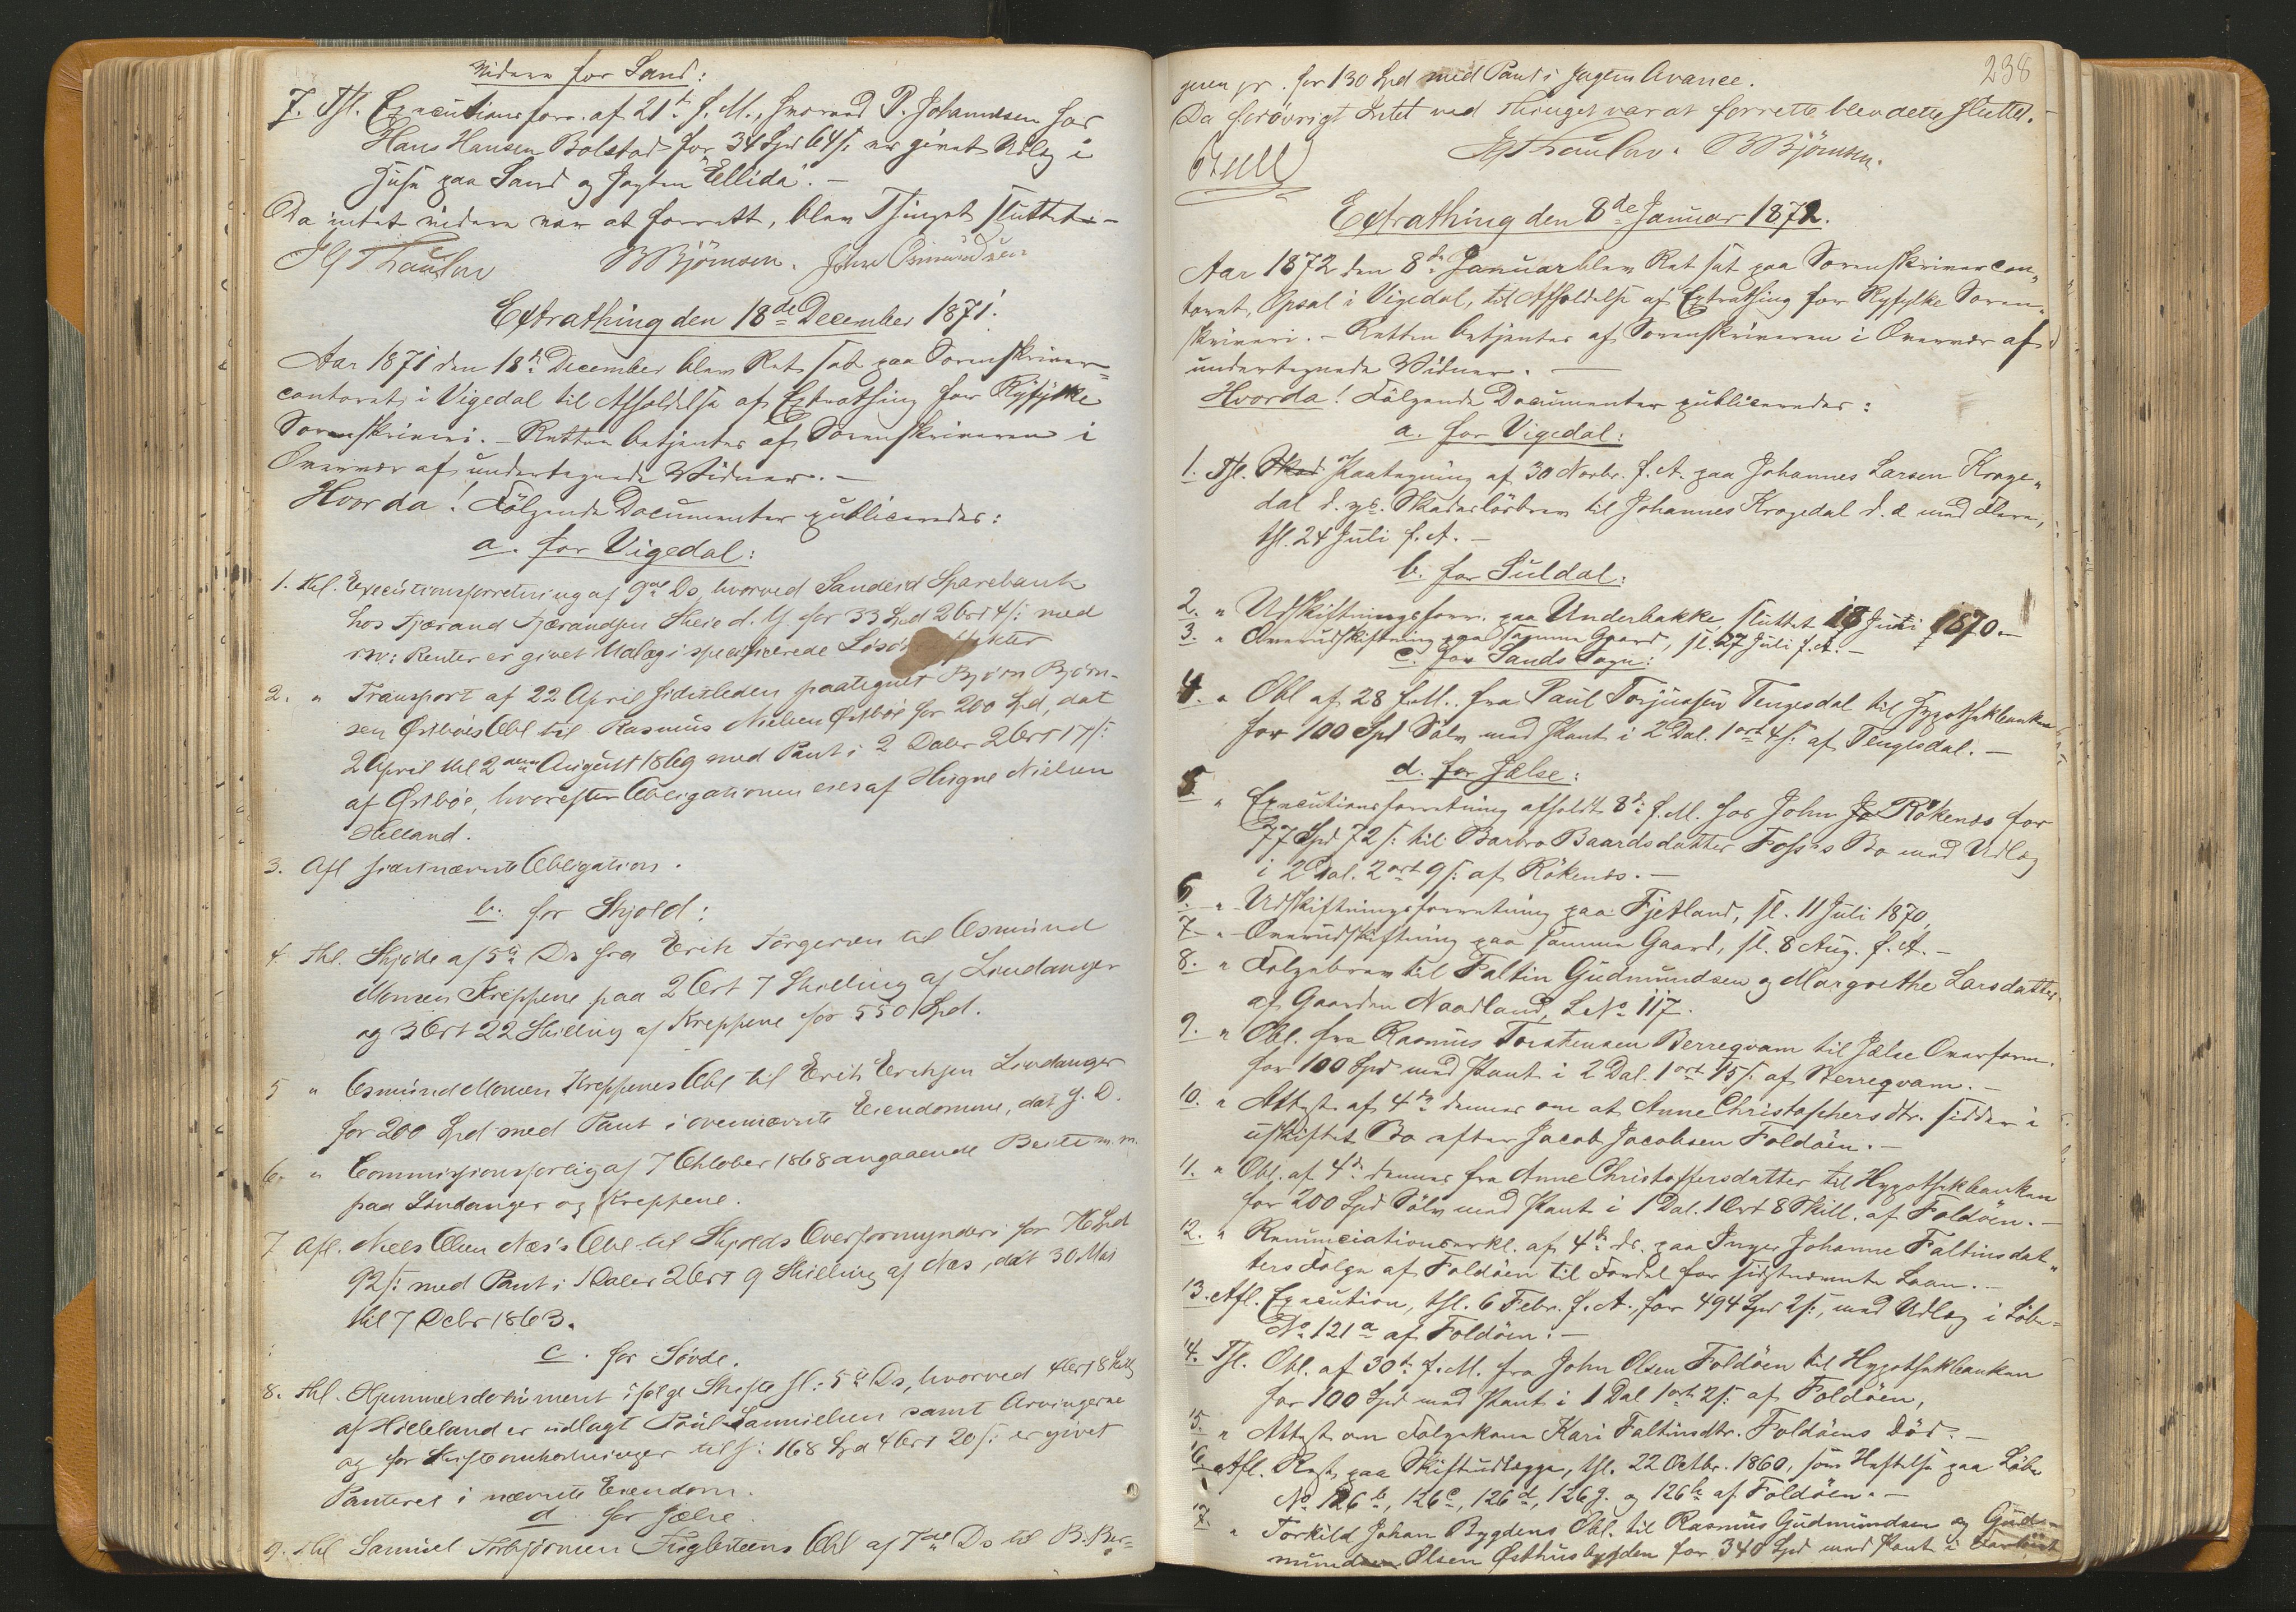 Videre for Sand:
7. Thl. Executionsforr. af 21de f. M., hvorved P. Johannesen hos
Hans Hansen Bolstad for 34 Spd 64 s: er givet Udlæg i
Huse paa Sand og Jagten "Ellida". –
Da intet videre var at forrette, blev Thinget sluttet. –
BBjörnsen. John Osmundsen
Extrathing den 18de December 1871.
Aar 1871 den 18de December blev Ret sat paa Sorenskriver-
contoret i Vigedal til Afholdelse af Extrathing for Ryfylke
Sorenskriveri. – Retten betjentes af Sorenskriveren i
Overvær af undertegnede Vidner. –
Hvorda! Følgende Documenter publiceredes:
a. for Vigedal:
1. thl. Executionsforretning af 9de Ds, hvorved Sandeid Sparebank
hos Tjærand Tjærandsen d. y. for 33 Spd 2 Ort 4 s: med
Renter er givet Udlæg i specificerede
2. " Transport af 22 April sidstleden paategnet Bjørn Bjørn-
sen Østbøes Obl til Rasmus Nielsen Østbøe for 200 Spd, dat
2 April thl 2den August 1869 med Pant i 2 Daler 2 Ort 17 s:
af Østbøe, hvorefter Obligationen eies af Nielsen
Helland.
3. Afl sidstnævnte Obligation.
b. for Skjold:
4. thl. Skjøde af 5te Ds fra Erik Torgersen til Osmund
Monsen Kreppene paa 2 Ort 7 Skilling af Lindanger
og 3 Ort 22 Skilling af Kreppene for 550 Spd.
5 " Osmund Monsen Kreppenes Obl til Erik Eriksen Lindanger
for 200 Spd med Pant i ovennævnte Eiendomme, dat g. D.
6. " Commissionsforlig af 7 Oktober 1868 angaaende Beite m. m.
paa Lindanger og Kreppene.
7 Afl. Niels Olsen Næs's Obl til Skjolds Overformynderi for Spd
92 s: med Pant i 1 Daler 2 Ort 9 Skilling af Næs, dat 30 Mai
thl 7 Decbr 1863.
c. for Søvde.
8. thl. Hjemmelsdokument ifølge Skifte sl: 5te Ds, hvorved 4 Ort 8 Skill
af Hilleland er udlagt Poul Samuelsen samt Arvingerne
og for Skifteomkostninger tils: 168 Spd 4 Ort 20 s: er givet
Panteret i nævnte Eiendom.
d. for Jælse.
9. thl Samuel Torbjörnsen Fuglesteens Obl af 7de Ds til B. Ber-
238
gesen jr. for 130 Spd med Pant i Jagten Avance.
Da forøvrigt Intet ved Thinget var at forrette blev dette sluttet. –
BBjörnsen.
Extrathing den 8de Januar 1872.
Aar 1872 den 8de Januar blev Ret sat paa Sorenskrivercon-
toret, Opsal i Vigedal, til Afholdelse af Extrathing for Ryfylke Soren-
skriveri. – Retten betjentes af Sorenskriveren i Overvær af
undertegnede Vidner. –
Hvorda! Følgende Documenter publiceredes:
a. for Vigedal:
1. Thl. Paategning af 30 Novbr. f. A. paa Johannes Larsen Kroge-
dal d. yo. Skadesløsbrev til Johannes Krogedal d. æ. med Flere,
thl. 24 Juli f. A. –
b. for Suldal:
2. " Udskiftningsforr. paa Underbakke, sluttet 18 Juli 1870. –
3. " Overudskiftning paa samme Gaard, sl. 27 Juli f. A. –
c. for Sands Sogn:
4. " Obl af 28 f. M. fra Paul Torjussen Tengesdal til Hypothekbanken
for 100 Spd Sølv med Pant i 2 Dal. 1 ort 4 s: af Tengesdal. –
d. for Jælse:
5 " Executionsforretning afholdt 8de f. M. hos John Jo Rökenes for
77 Spd 72 s: til Barbro Baardsdatter Foss's Bo med Udlæg
i 2 Dal. 2 ort 9 s: af Rökenes. –
6. " Udskiftningsforretning paa Fjetland, sl. 11 Juli 1870.
7. " Overudskiftning paa samme Gaard, sl. 8 Aug. f. A. –
8. " Følgebrev til Faltin Gudmundsen og Margrethe Larsdatter
af Gaarden Naadland, L No 117.
9. " Obl. fra Rasmus Torstensen Berreqvam til Jælse Overform.
for 100 Spd med Pant i 2 Dal. 1 ort 15 s: af Berreqvam. –
10. " Attest af 4de dennes om at Anne Christophersdtr. sidder i
uskiftet Bo efter Jacob Jacobsen Foldöen. –
11. " Obl. af 4de dennes fra Anne Christoffersdatter til Hypothekbanken
for 200 Spd Sølv med Pant i 1 Dal. 1 Ort 8 Skill. af Foldöen. –
12. " Renunciationserkl. af 4de ds. paa Inger Johanne Faltinsdat-
ters Følge af Foldöen til Fordel for sidstnævnte Laan. –
13. Afl. Execution, thl. 6 Febr. f. A., for 494 Spd 2 s:, med Udlæg i Löbe-
No 121 a af Foldöen. –
14. Thl. Obl. af 30te f. M. fra John Olsen Foldöen til Hypothekbanken
for 100 Spd med Pant i 1 Dal 1 ort 2 s: af Foldöen,
15. " Attest om Følgekone Kari Faltinsdtr. Foldöens Død. –
16. Afl. Rest paa Skifteudlægge, thl. 22 Octbr. 1860, som Heftelse paa Löbe
No 126 b, 126 c, 126 d, 126 g. og 126 h af Foldöen. –
17. " Torkild Johan Bygdens Obl. til Rasmus Gudmundsen og Gud-
mund Olsen Østhusbygden for 340 Spd med Pant i